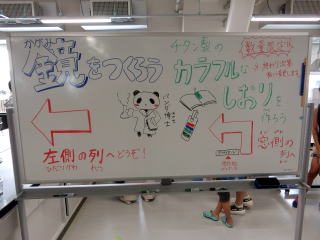 かがみ
鏡をつくろう
チタン製の
カラフルな
しおりを
作ろう
数量限定
パンダ博士
左側の列へどうぞ!
ひだりがわ れつ
窓側の
列へ